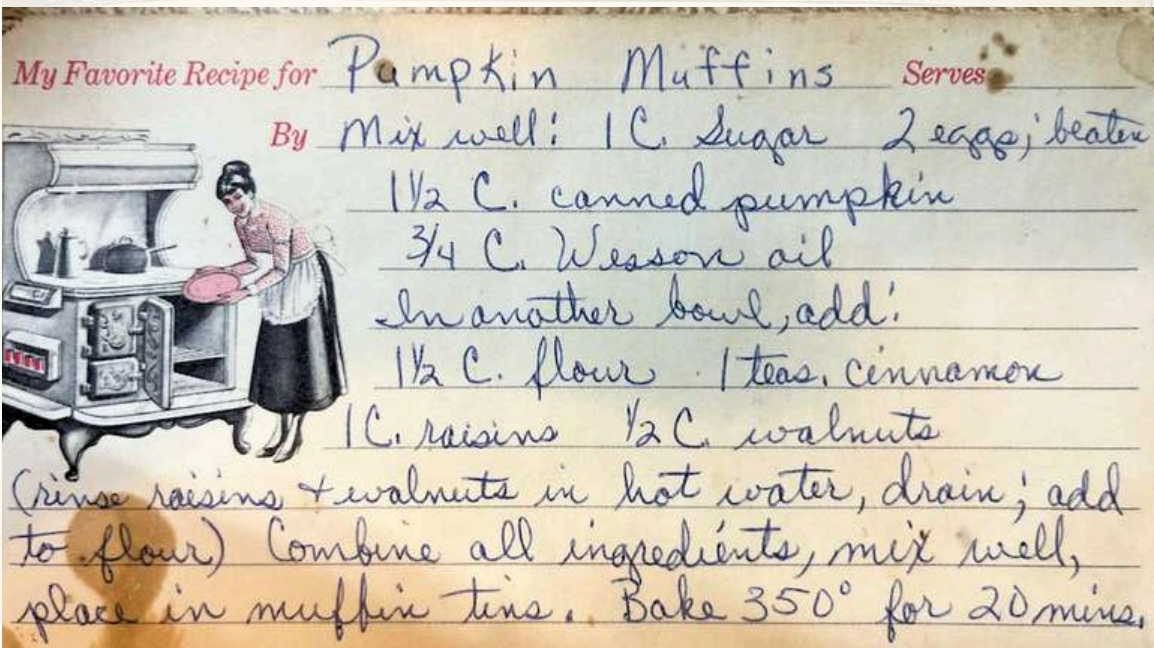 My Favorite Recipe for Pumpkin Muffins Serves
By Mix well: 1 C. Sugar 2 eggs; beaten
1 1/2 C. canned pumpkin
3/4 C. Wesson oil
In another bowl, add:
1 1/2 C. flour 1 teas. cinnamon
1 C. raisins 1/2 C. walnuts
(rinse raisins + walnuts in hot water, drain; add
to flour) Combine all ingredients, mix well,
place in muffin tins. Bake 350° for 20 mins.